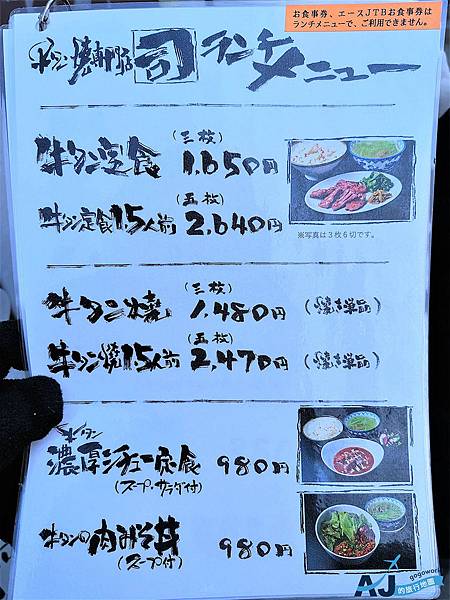 お食事券、エースJTBお食事券は
ランチメニューで、ご利用できません。
牛タン焼専門店 司 ランチメニュー
(三枚)
牛タン定食 1,650円
(五枚)
牛タン定食1.5人前 2,640円
※写真は3枚6切です。
(三枚)
牛タン焼 1,480円 (焼き単品)
(五枚)
牛タン焼1.5人前 2,470円 (焼き単品)
牛タン
濃厚シチュー定食 980円
(スープ・サラダ付)
牛タンの肉みそ丼 980円
(スープ付)
gogowork
AJ的旅行地圖